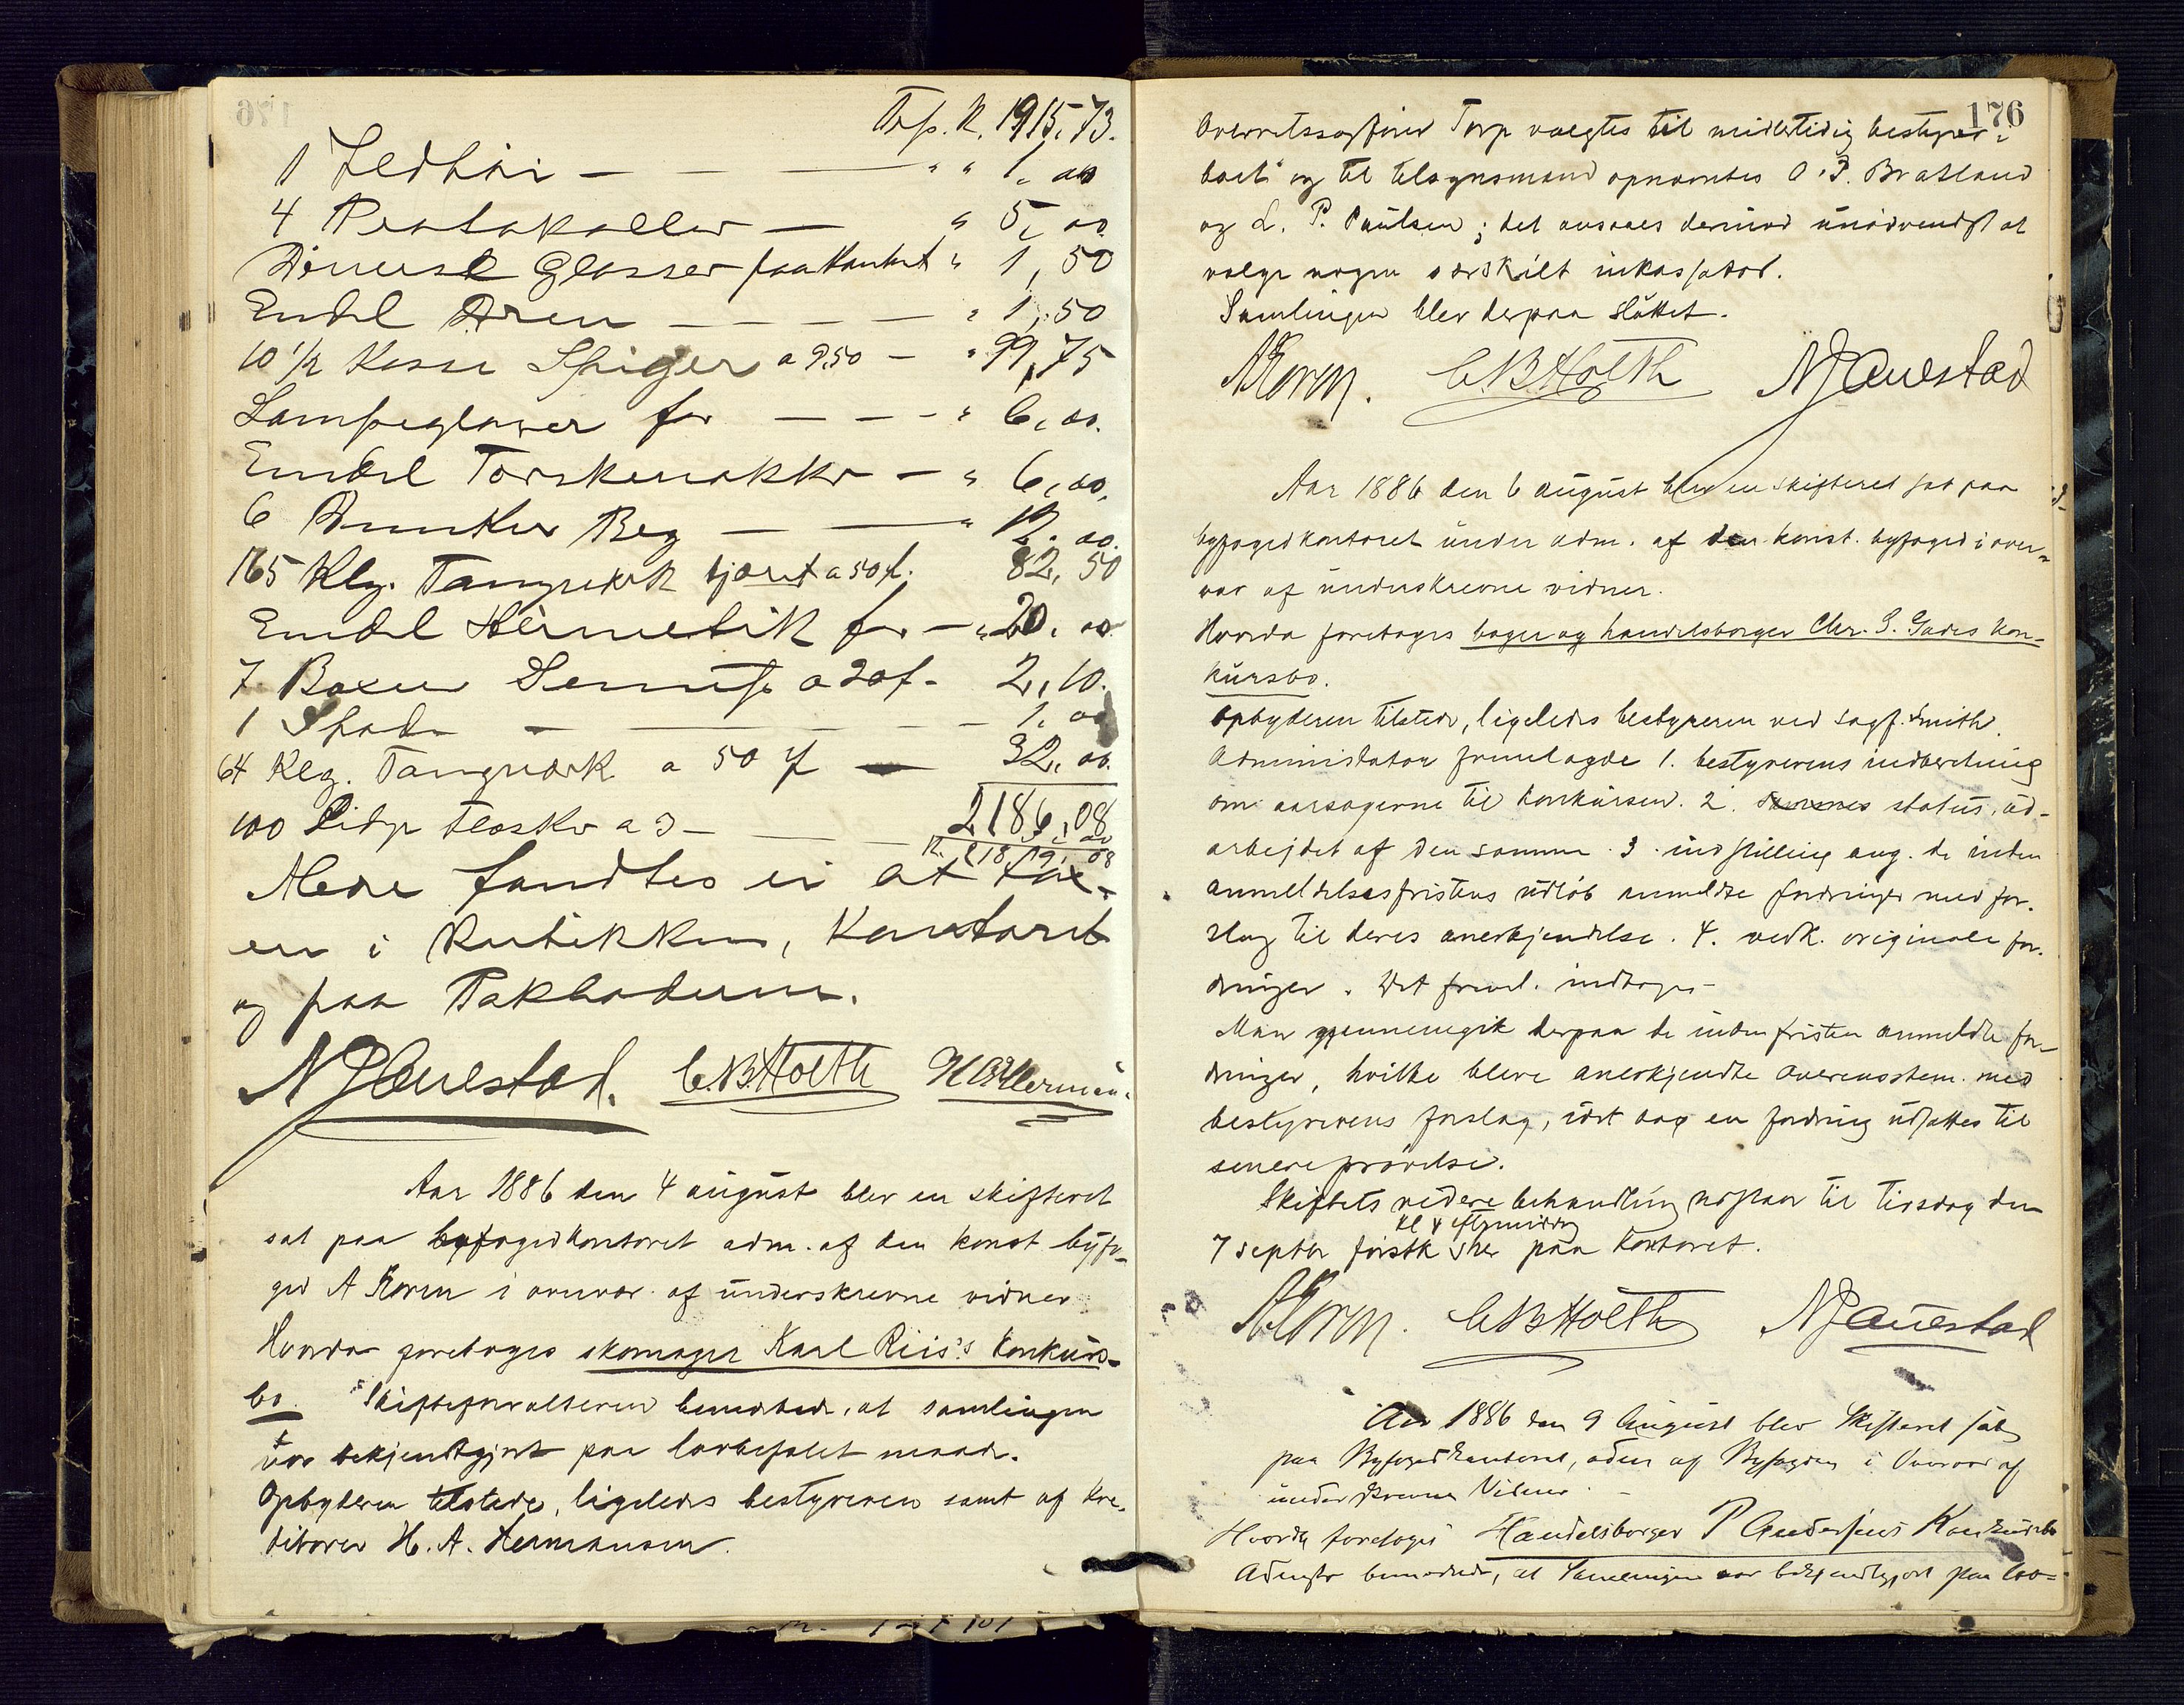 Trsp. K. 1915,73.
1 - - " " 1,00
4 Protokoller - " 5,00
Diverse Glasser paa Kontort " 1,50
Endel - - - " 1,50
10 1/2 Kasse Spiger a 9,50 - " 99,75
Lampeglasser for - - - " 6,00.
Endel Torskerakke - " 6,00.
6 Dunker Beg - - " 12,00.
165 Klg. Tangverk tjæret a 50 f. 82,50
Endel Hermetik for - " 20,00
7 Boxer Sennep a 30 f - 2,10.
1 Spade - - - 1,00
64 Klg. Tangverk a 50 f - 32,00.
2186,08
100 flaske a 3 - - 3,00
K. 2189,08
Mere fandtes ei at tax-
er i Kutikken, Kontoret
og paa Pakboderne.
N J Auestad. C.B. Holth H A Hermansen
Aar 1886 den 4 august blev en skifteret
sat paa byfogedkontoret adm. af den konst byfo-
ged A Koren i overvær af underskrevne vidner.
Hvorda foretoges skomager Karl Riis's konkurs-
bo. Skifteforvalteren bemærkede, at samlingen
var bekjendtgjort paa lovbefalet maade.
Opbyderen tilstede, ligeledes bestyreren samt af kre-
ditorer H. A. Hermansen.
176
Overretssagfører Torp valgtes til midlertidig bestyrer i
boet og til tilsynsmænd opnævntes O. P. Bratland
og L. P. Paulsen; det ansaaes derimod unødvendigt at
vælge nogen særskilt inkassator.
Samlingen blev derpaa sluttet.
A Koren. C.B. Holth N J Auestad
Aar 1886 den 6 august blev en skifteret sat paa
byfogedkontoret under adm. af den konst. byfoged i over-
vær af underskrevne vidner.
Hvorda foretoges bager og handelsborger Chr. S. Gades kon-
kursbo.
Opbyderen tilstede, ligeledes bestyreren ved sagf. Smith.
Administrator fremlagde 1. bestyrerens indberetning
om aarsagerne til konkursen. 2. status, ud-
arbejdet af den samme. 3. indstilling ang. de inden
anmeldelsesfristens udløb anmeldte fordringer med for-
slag til deres anerkjendelse. 4. vedk. originale for-
dringer. Det freml. indtages -
Man gjennemgik derpaa de inden fristen anmeldte for-
dringer, hvilke bleve anerkjendte overensstem. med
bestyrerens forslag, idet dog en fordring udsattes til
senere prøvelse.
Skiftets videre behandling udstaar til tirsdag den
kl 4 eftermiddag
7 septbr førstk. her paa kontoret.
A Koren. C.B. Holth N J Auestad
Aar 1886 den 9 August blev Skifteret sat
paa Byfogedkontoret, adm af Byfogden i Overvær af
underskrevne Vidner. -
Hvorda foretoges Handelsborger P Andersens Konkursbo
Adm bemærkede, at Samlingen var bekjendtgjort paa lov-